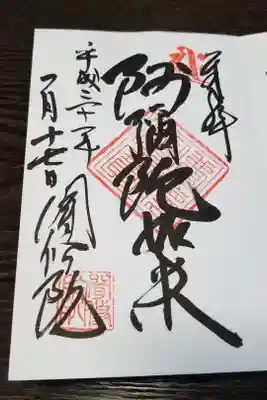 奉拝
阿彌陀如来
平成三十年
一月十七日